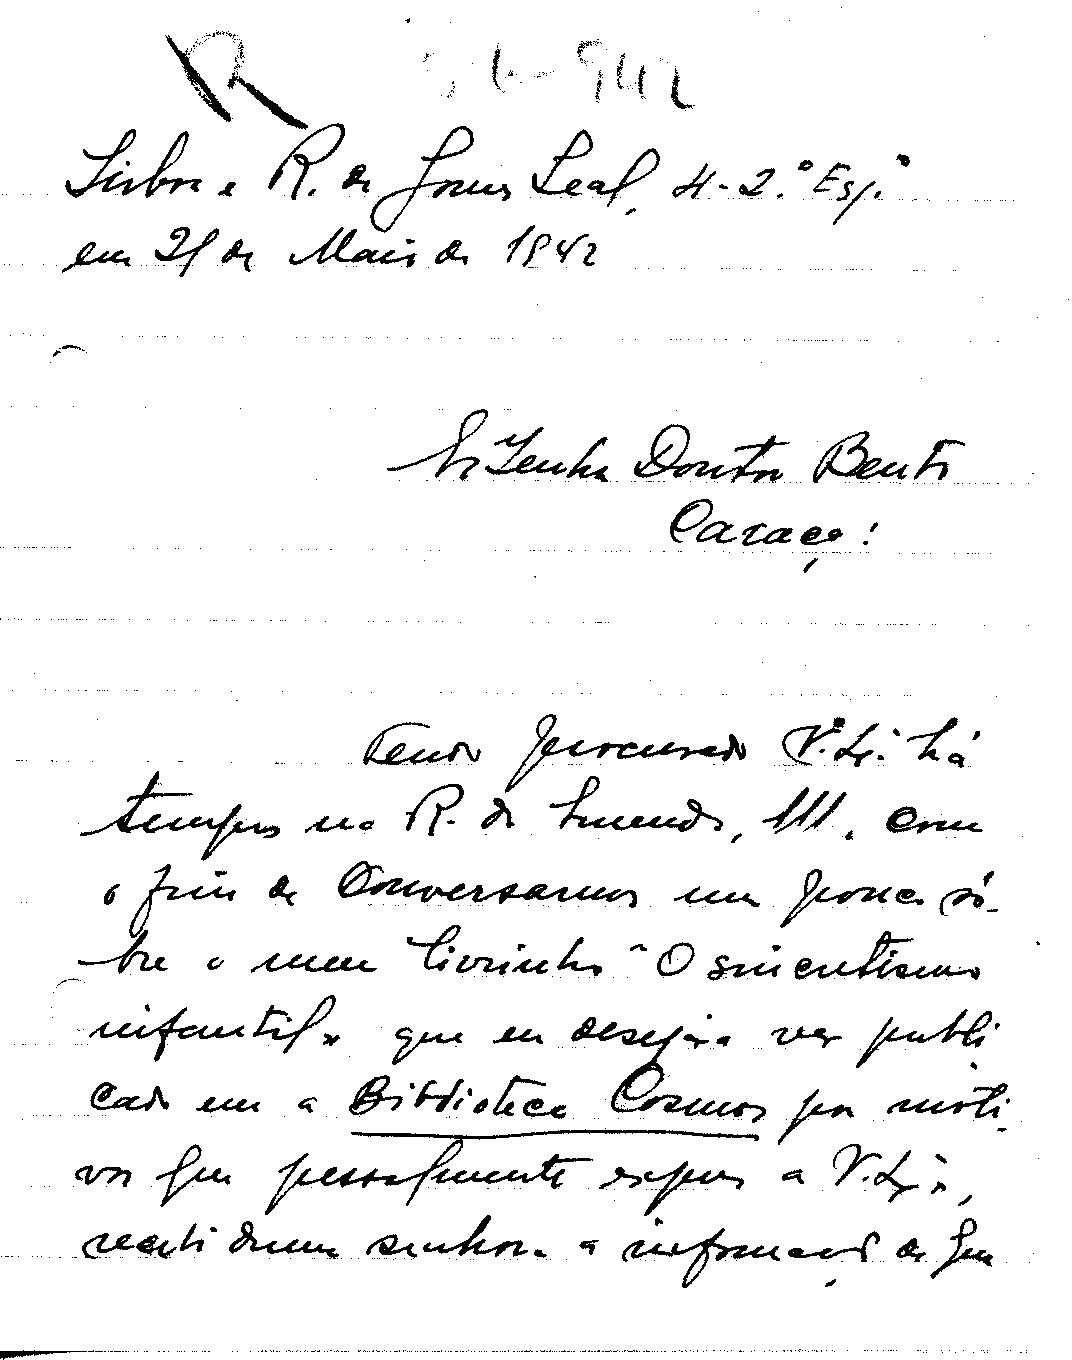 R
6-942
Lisboa, R. de Gomes Leal, 4-2.º Esq.º
em 21 de Maio de 1942
Senhor Doutor Bento
Caraça:
Tendo procurado V. Ex.ª há
tempos na R. do Smendo, 111, com
o fim de conversarmos um pouco sô-
bre o meu livrinho "O sincretismo
infantil" que eu desejaria ver publi
cado em a Biblioteca Cosmos por moti-
vos que pessoalmente expus a V. Ex.ª,
recebi duma senhora a informação de que